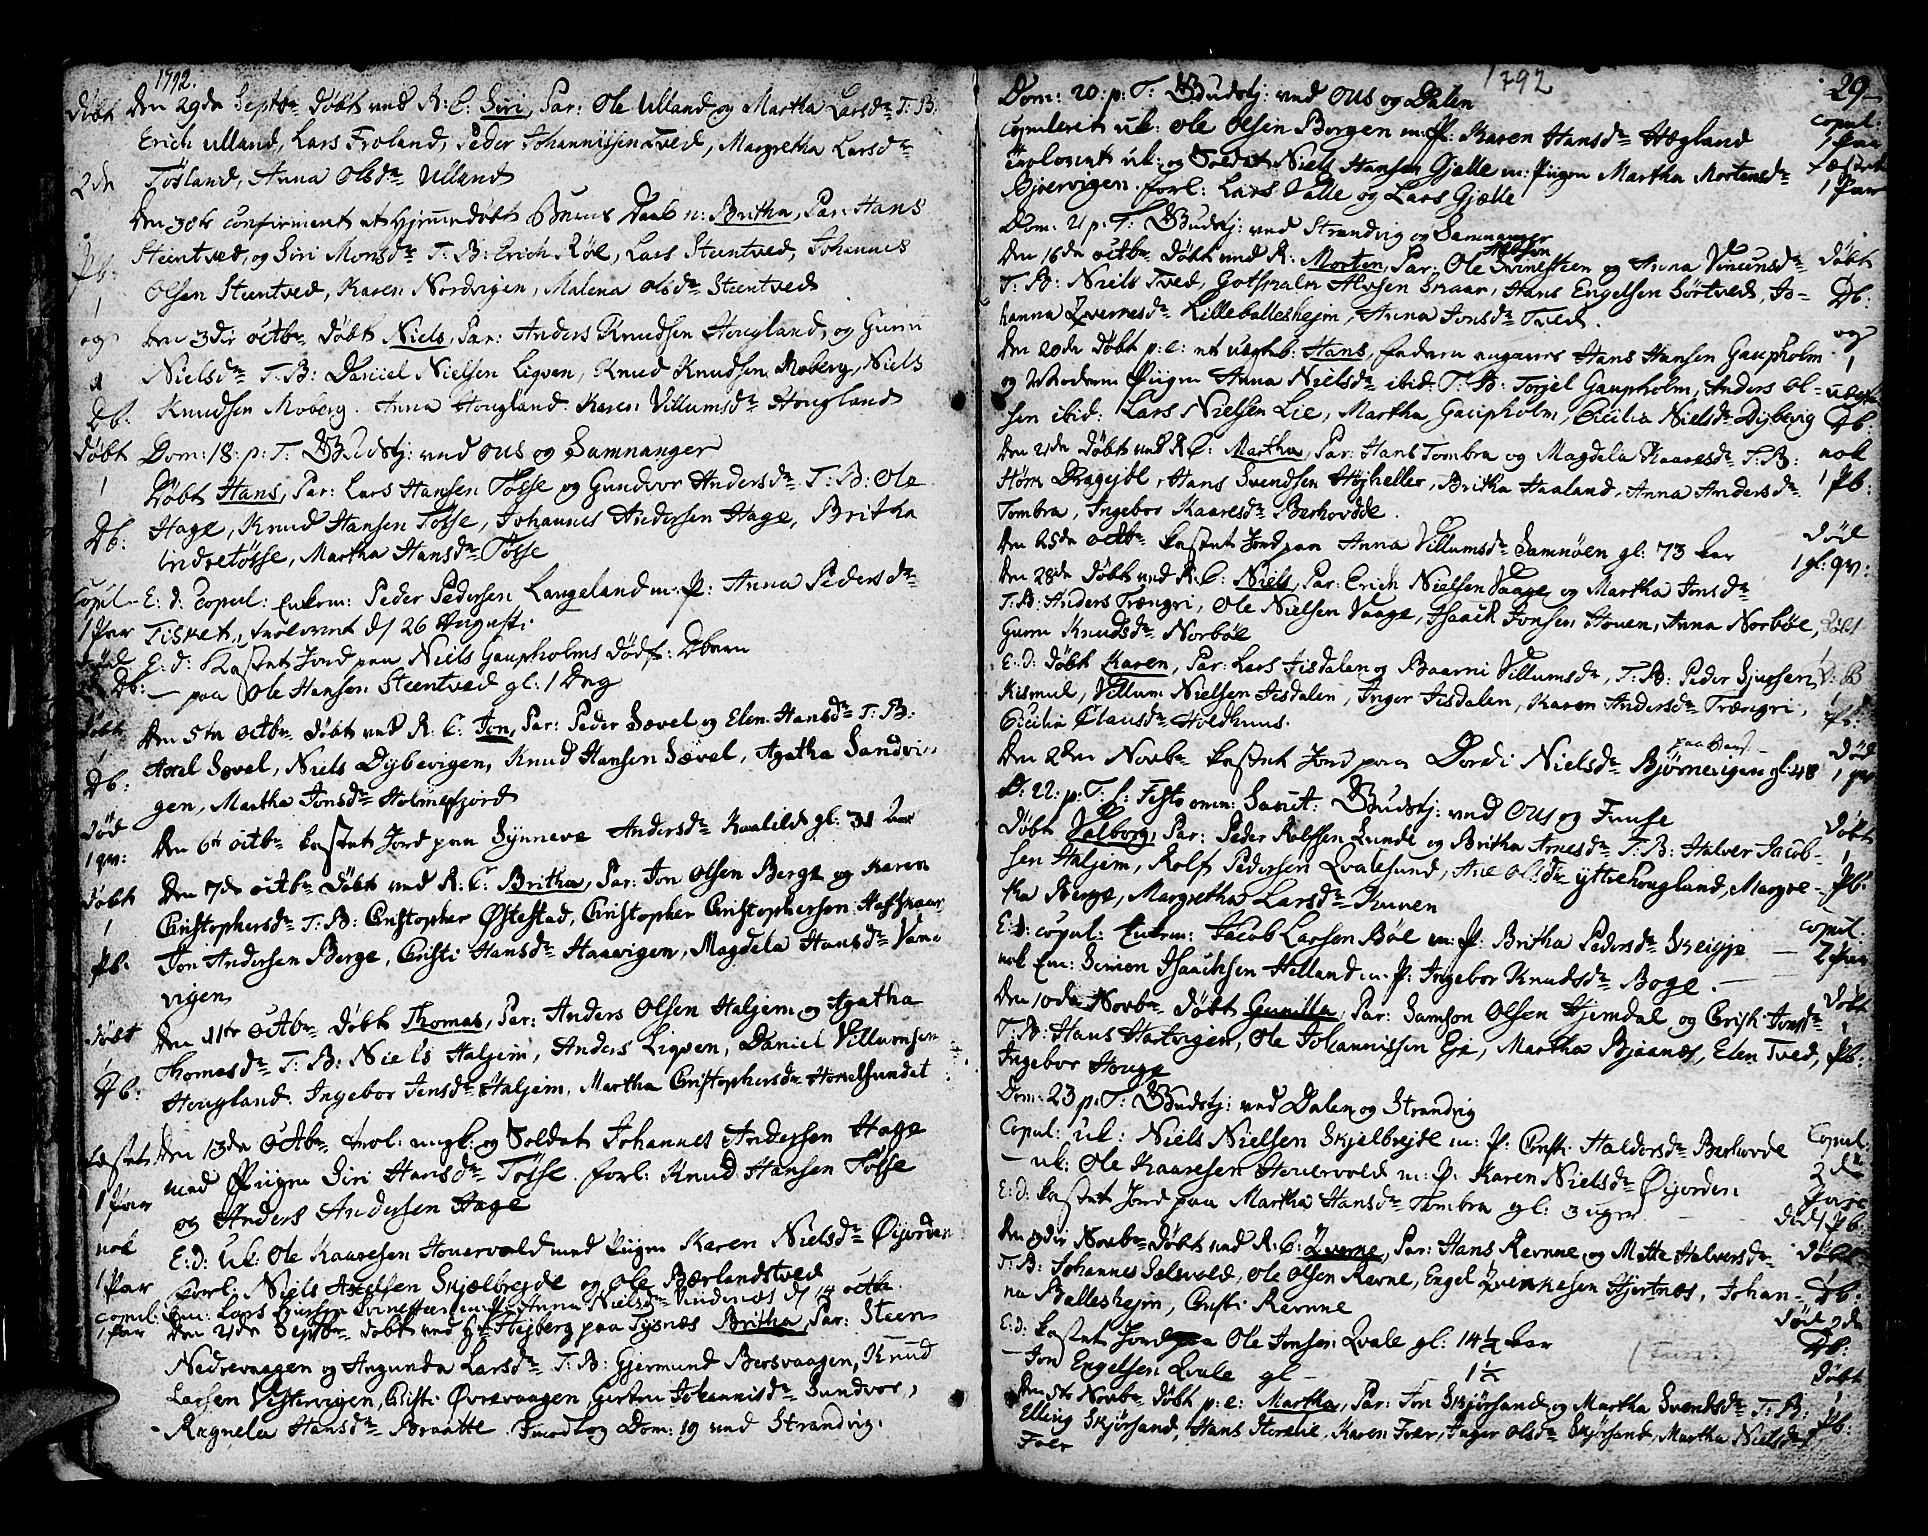 1792.
Døbt Den 29de Septbr døbt ved R. C: Siri, Par: Ole Ulland og Martha Larsdr T: B:
Erich Ulland, Lars Froland, Peder Johannissen Tved, Margretha Larsdr
2de Tøsland, Anna Olsdr Ulland
Den 30te confirmeret et hjemmedøbt Barns Daab n: Britha, Par: Hans
Pb: Steentved, og Siri Monsdr T: B: Erich Røe, Lars Steentved, Johannes
1 Olsen Steentved, Karen Nordvigen, Malena Olsdr Steentved
og Den 3die Octbr døbt Niels, Par: Anders Knudsen Hougland, og Guru
1 Nielsdr T: B: Daniel Nielsen Ligven, Knud Knudsen Moberg, Niels
Db: Knudsen Moberg. Anna Hougland. Karen Villumsdr Hougland
døbt Dom: 18: p: T: Gudstj: ved Ous og Samnanger
1 Døbt Hans, Par: Lars Hansen Tøsse og Gundvor Andersdr T: B: Ole
Db: Hage, Knud Hansen Tøsse, Johannes Andersen Hage, Britha
Indretøsse, Martha Hansdr Tøsse
copul E: d: copul: Enkem: Peder Pedersen Langeland m: P: Anna Pedersdr
1 Par Tisket, trolovet d/ 26 Augusti.
død E: d: Kastet Jord paa Niels Gaupholms dødf: Dbarn
Db: — paa Ole Hansen Steentved gl: 1 Dag
døbt Den 5te Octbr døbt ved R. C: Jon, Par: Peder Sævel og Elen Hansdr T: B:
1 Axel Sævel, Niels Dybevigen, Knud Hansen Sævel, Agatha Sandvi-
Db: gen, Martha Jonsdr Holmefjord
død Den 6te Octbr kastet Jord paa Synneve Andersdr Kaalild gl: 31 Aar
1 qv:
døbt Den 7de Octbr døbt ved R. C: Britha, Par: Jon Olsen Berge og Karen
1 Christophersdr T: B: Christopher Østestad, Christopher Christophersen Hafskaar,
Pb: Jon Andersen Berge, Christi Hansdr Haavigen, Magdela Hansdr Vaa-
vigen
døbt Den 11te Octbr døbt Thomas, Par: Anders Olsen Haljem og Agatha
1 Thomasdr T: B: Niels Haljem, Anders Ligven, Daniel Villumsen
Db: Hougland. Ingebor Jensdr Haljem, Martha Christophersdr Hovelsundet
fæstet Den 13de Octbr trol: ungk: og Soldat Johannes Andersen Hage
1 Par med Pigen Siri Hansdr Tøsse. forl: Knud Hansen Tøsse
og Anders Andersen Hage
nok E: d: Uk: Ole Kaaresen Hovervold med Pigen Karen Nielsdr Øijorden
1 Par Forl: Niels Axelsen Skjælbrejde og Ole Bærlandstved
copul: Em: Lars Svinesteen m: P: Anna Nielsdr Vindenæs d/ 14 Octbr.
1 Par Den 21de Septbr døbt ved Hr Hejberg paa Tysnæs Britha, Par: Steen
Nedrevaagen og Angunda Larsdr T: B: Gjermund Bersvaagen, Knud
Larsen Vestervigen, Christi Øvrevaagen, Gertru Johannisdr Sundvor,
Ragnela Hansdr Braatte. Introd: og Dom: 19 ved Strandvig.
1792
29
Dom: 20: p: T: Gudstj: ved Ous og Dalen
Copuleret uk: Ole Olsen Borgen m: P: Karen Hansdr Hægland copul: 1 Par
Trolovet uk: og Soldat Niels Hansen Gjelle m: Pigen Martha Mortensdr fæstet
Bjørvigen. forl: Lars Valle og Lars Gjelle 1 Par
Dom: 21 p: T: Gudstj: ved Strandvig og Samnanger
Den 16de Octbr døbt ved R: Morten, Par: Ole Svinesteen og Anna Vincensdr døbt
T: B: Niels Tved, Gotskalk Alvsen Skaar, Hans Engelsen Sørtved, Jo- Db:
hanna Qvernesdr Lilleballeshejm, Anna Jonsdr Tved. og
Den 20de døbt p: e: et uægteb: Hans, faderen angaves Hans Hansen Gaupholm 1
og Moderen Pigen Anna Nielsdr ibid: T: B: Torjel Gaupholm, Anders Ol- uægte
sen ibid: Lars Nielsen Lie, Martha Gaupholm, Cecilia Nielsdr Dybevig Db:
Den 21de døbt ved R: C: Martha, Par: Hans Tombra og Magdela Kaaresdr T: B: nok
Drageide, Hans Svendsen Højheller, Britha Haaland, Anna Andersdr 1 Pb:
Tombra, Ingebor Kaaresdr Berhovde.
Den 25de Octbr kastet Jord paa Anna Villumsdr Samnøen gl: 73 Aar død 1 gl: qv:
Den 28de døbt ved R: C: Niels, Par: Erich Nielsen Vaage og Martha Jonsdr
T: B: Anders Trængri, Ole Nielsen Vaage, Isaack Jonsen Hoven, Anna Norbøe, døbt
Guru Knudsdr Norbøe
E: d: døbt Karen, Par: Lars Jisdalen og Baarni Villumsdr, T: B: Peder Sjursen D: B
Kismul, Villum Nielsen Jisdalen, Inger Jisdalen, Karen Andersdr Trængri, Pb:
Cecilia Clausdr Holdhuus.
Den 2den Novbr kastet Jord paa Dordi Nielsdr Bjørnevigen gl: 48 død 1 qv:
D: 22: p: T: f: Festo omn: Sanct: Gudstj: ved Ous og Fuuse
Døbt Valborg, Par: Peder Rolfsen Lunde og Britha Arnesdr T: B: Halver Jacob- døbt
sen Haljem, Rolf Pedersen Qvalesund, Ane Olsdr Yttrehougland, Margre- Pb:
tha Berge, Margretha Larsdr Tveiten
E: d: copul: Enkem: Jacob Larsen Bøe m: P: Britha Pedersdr Skeigje copul:
nok Em: Simon Isaachsen Helland m: P: Ingebor Knudsdr Boge. — 2 Par
Den 10de Novbr døbt Gunilla, Par: Samson Olsen Hjemdal og Christi Jonsdr døbt
T: B: Hans Hartvigen, Ole Johannissen Eje, Martha Bjaanæs, Elen Tved, Pb:
Ingebor Houge
Dom: 23 p: T: Gudstj: ved Dalen og Strandvig
Copul: uk: Niels Nielsen Skjelbrejde m: P: Christi Haldorsdr Berhovde Copul:
— uk: Ole Kaaresen Hovervold m: P: Karen Nielsdr Øijorden 2de
E: d: kastet Jord paa Martha Hansdr Tombra gl: 3 uger Parje død 1 Pb:
Den 9die Novbr døbt ved R: C: Qverne, Par: Hans Revne og Mette Halversdr døbt
T: B: Johannes Sælsvold, Ole Olsen Revne, Engel Qvernesen Hjertnes, Johan- Db:
na Balleshejm, Christi Revne
E: d: kastet Jord paa Ole Jonsen Qvale gl: 14 1/2 Aar død 2de
— Jon Engelsen Qvale gl — 1 1/2 Db:
Den 5te Novbr døbt p: e: Martha, Par: Jon Skjørsand og Martha Svendsdr T: B: døbt 1
Elling Skjørsand, Hans Storelie, Karen Foer, Inger Olsdr Skjørsand, Martha Nielsdr Pb:
Foer